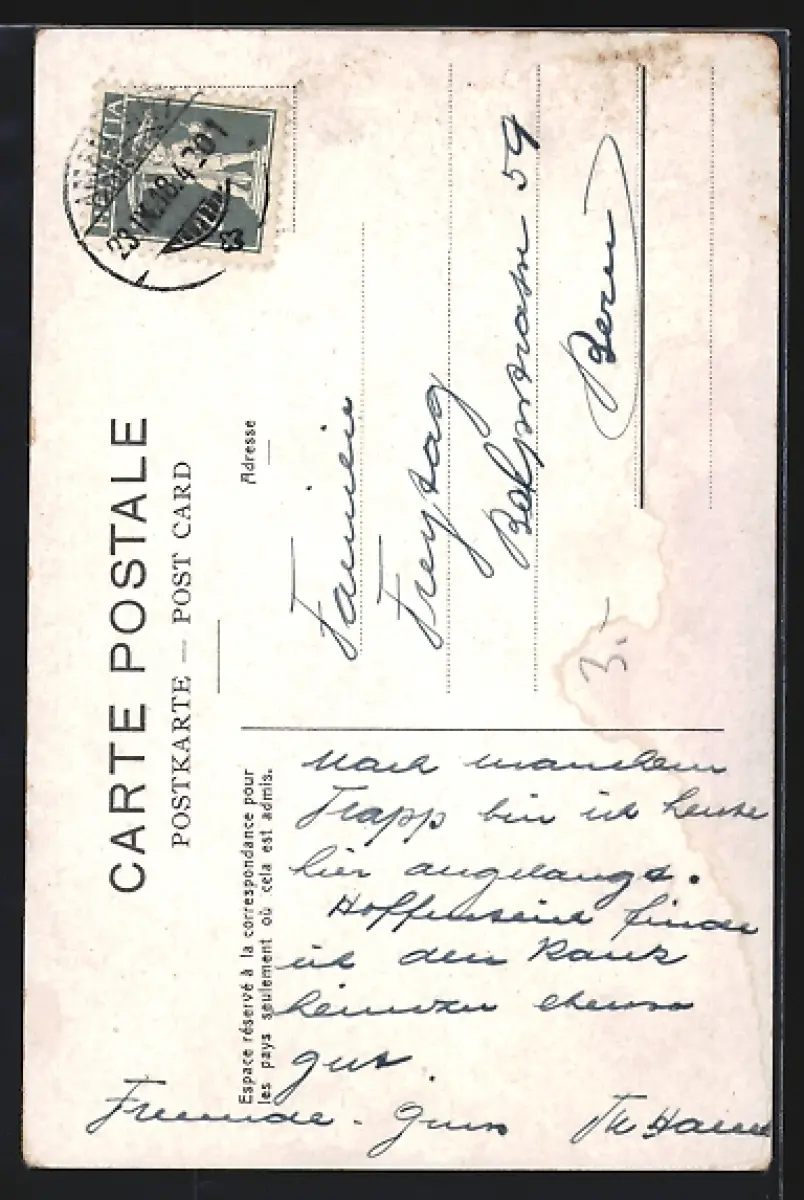 CARTE POSTALE
POSTKARTE — POST CARD
HELVETIA
Adresse
Familie
Freytag
Belpstrasse 59
Bern
3.-
Espace réservé à la correspondance pour
les pays seulement où cela est admis.
Nach manchem
Trapp bin ich heute
hier angelangt.
Hoffentlich finde
ich den Rank
heimzu ebenso
gut.
Freundl. Gruss Th